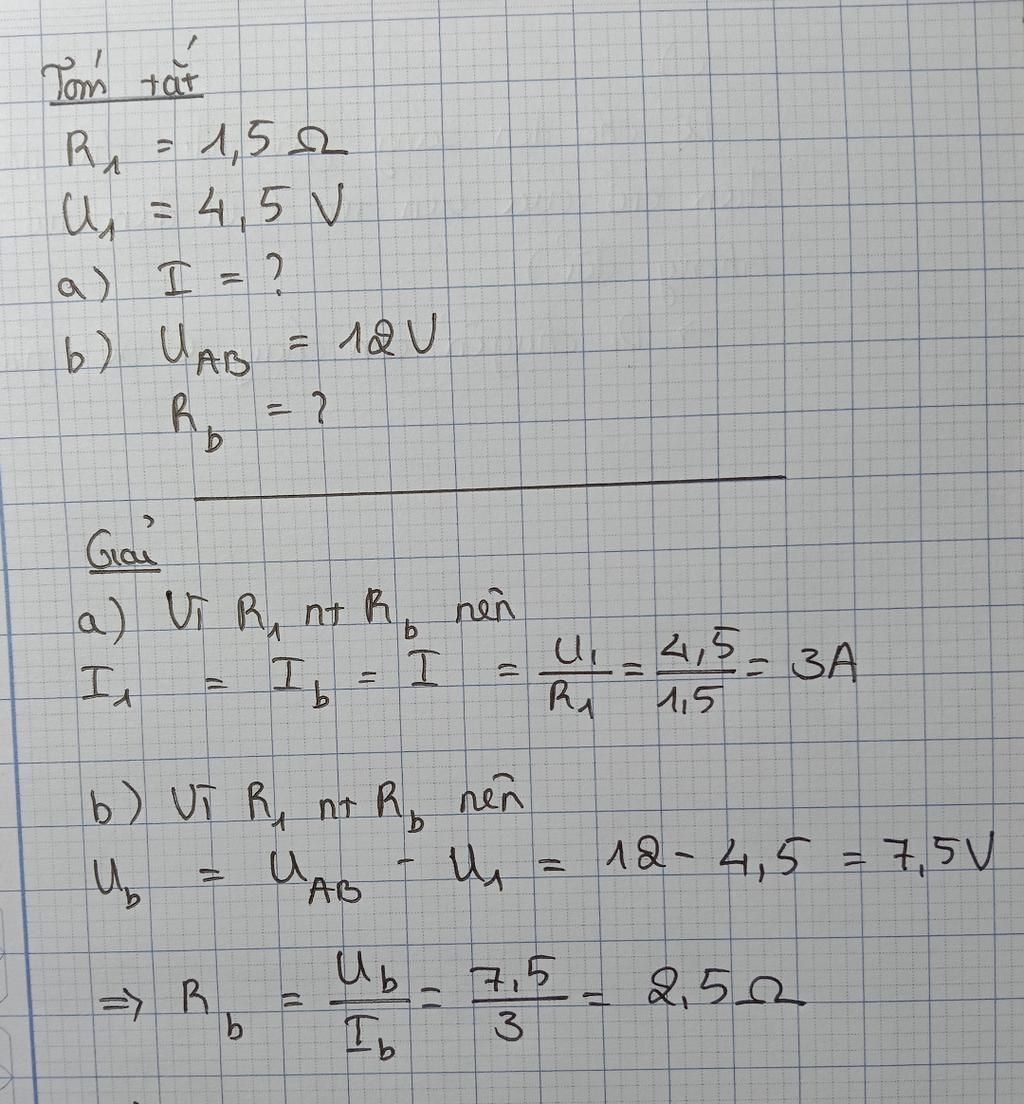 Tóm tắt
R₁ = 1,5 Ω
U₁ = 4,5 V
a) I = ?
b) U_AB = 12V
R_b = ?
Giải
a) Vì R₁ nt R_b nên
I₁ = I_b = I = U₁/R₁ = 4,5/1,5 = 3A
b) Vì R₁ nt R_b nên
U_b = U_AB - U₁ = 12 - 4,5 = 7,5V
=> R_b = U_b/I_b = 7,5/3 = 2,5Ω